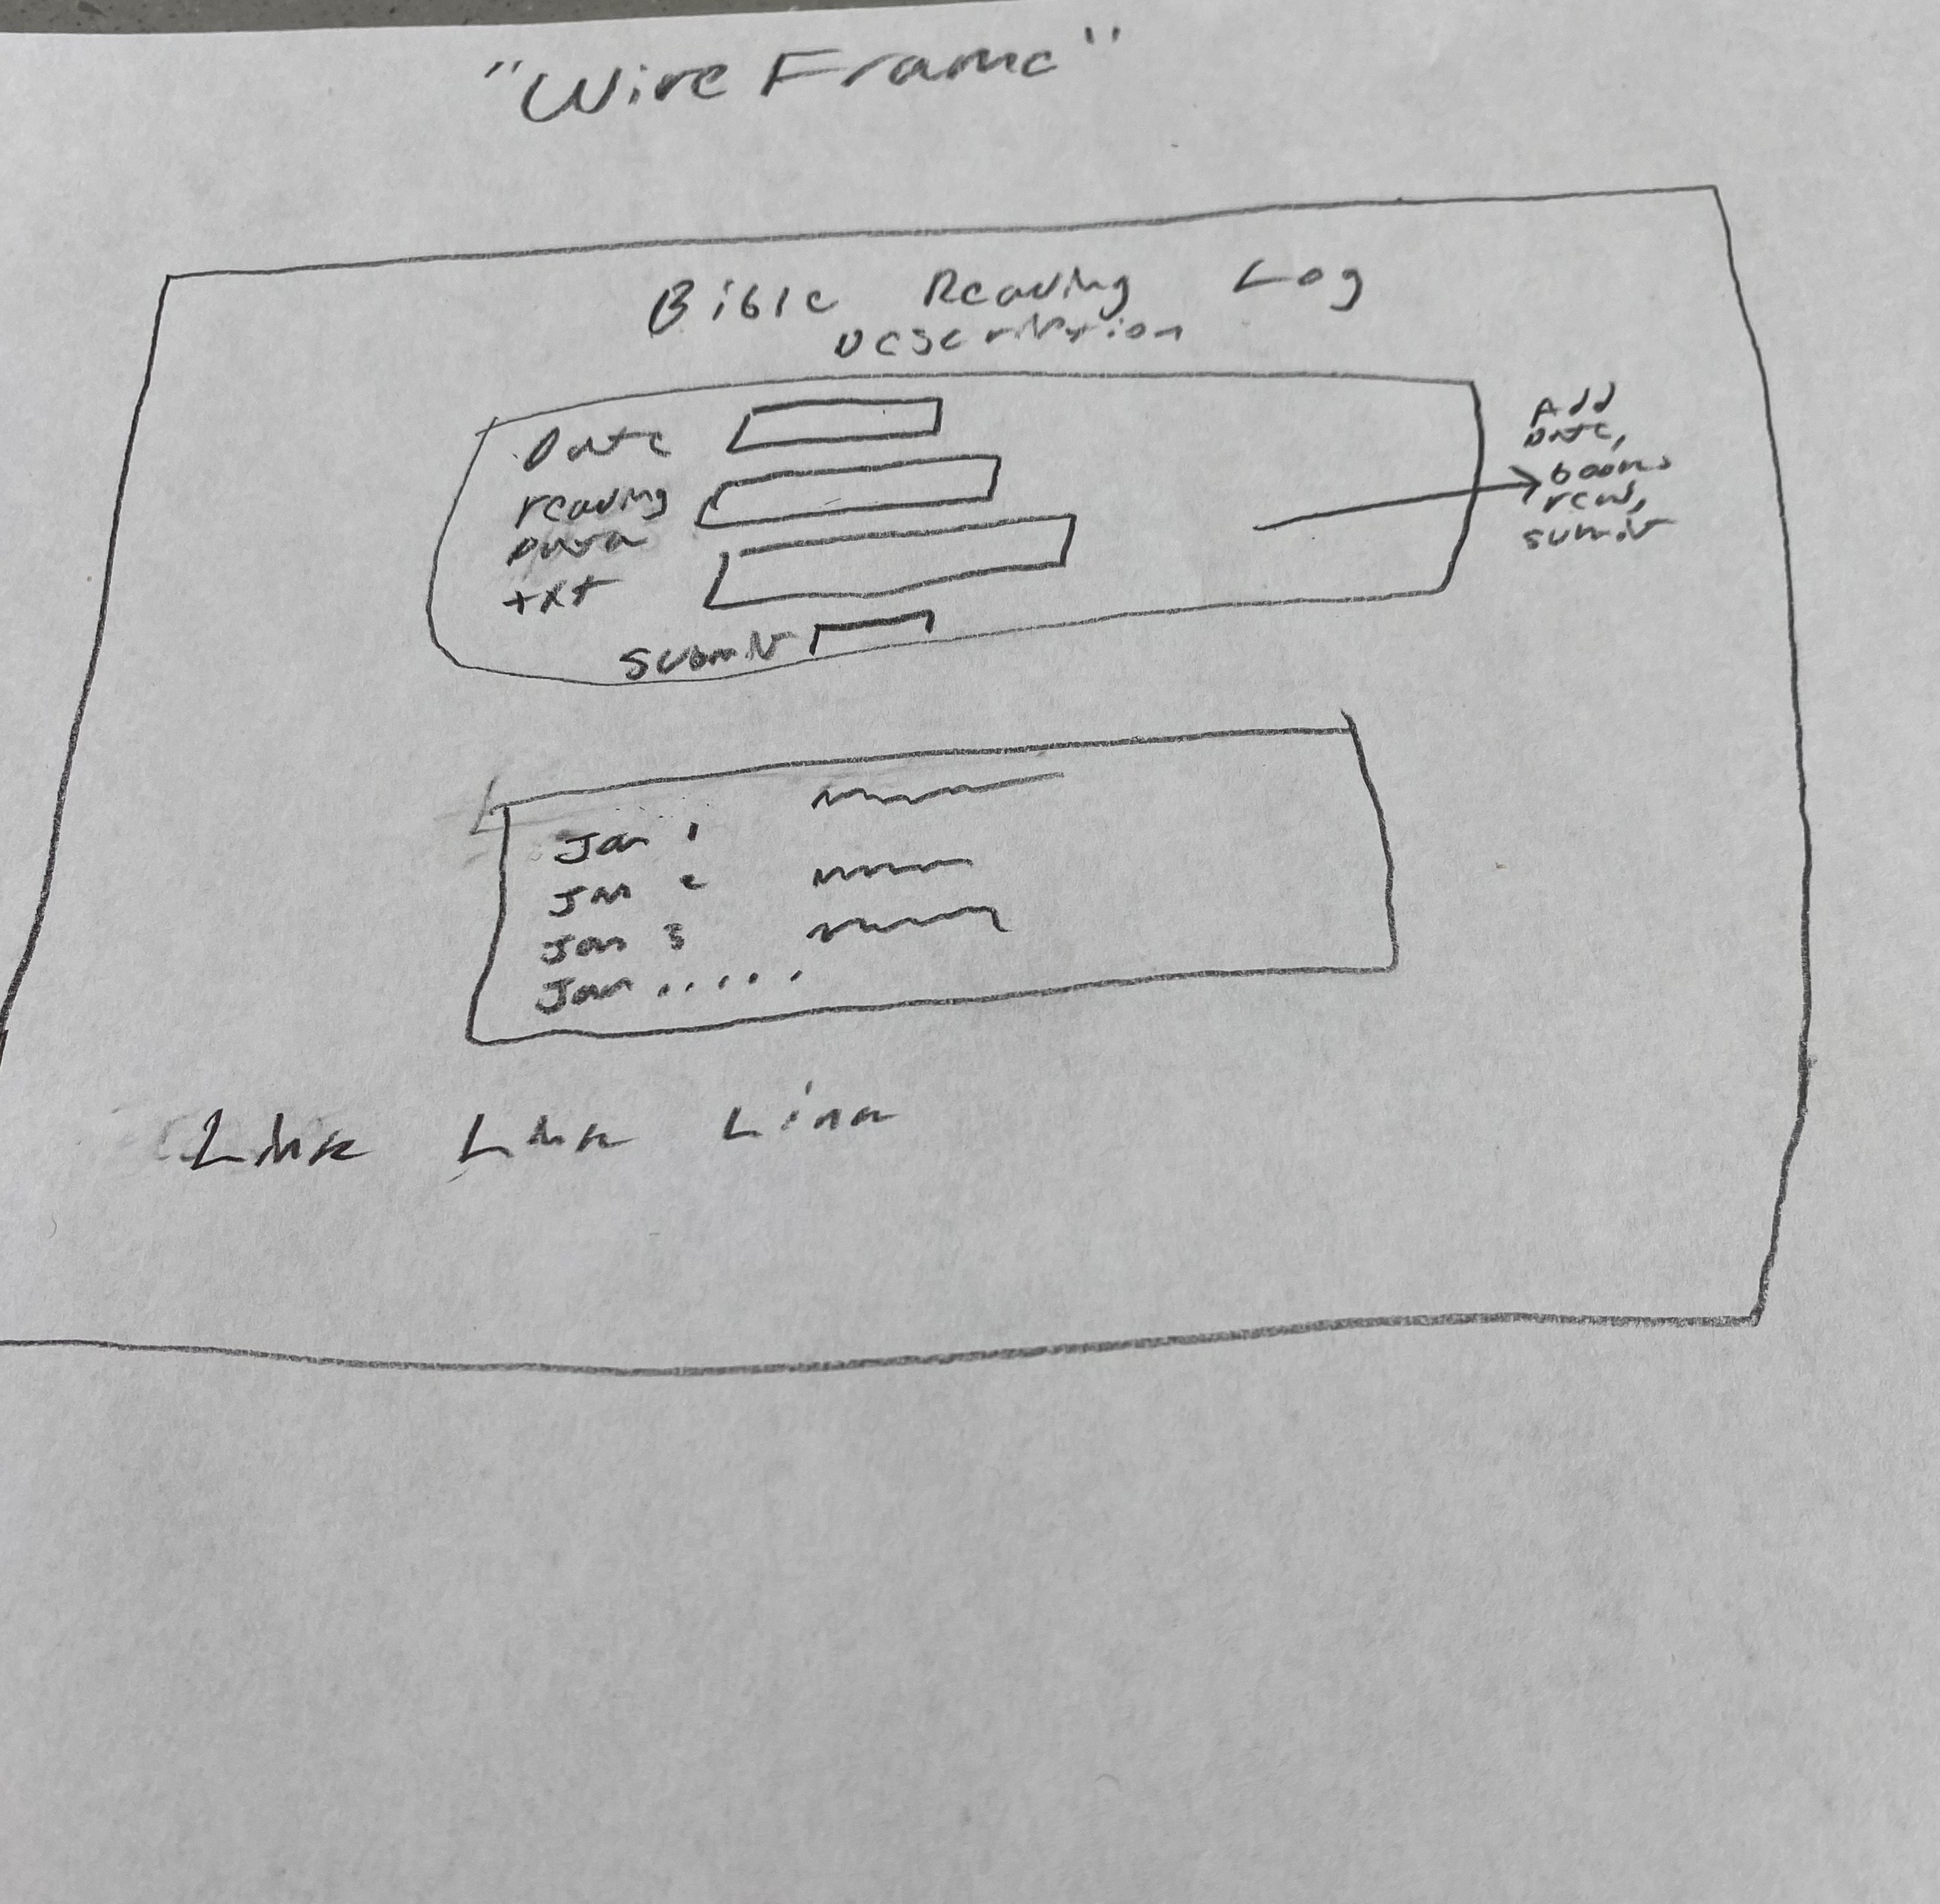 "Wire Frame"
Bible Reading Log
Description
Date
reading
Data
txt
Submit
Add
Date,
books
read,
sumit
Jan 1
Jan 2
Jan 3
Jan .....
Link Link Link